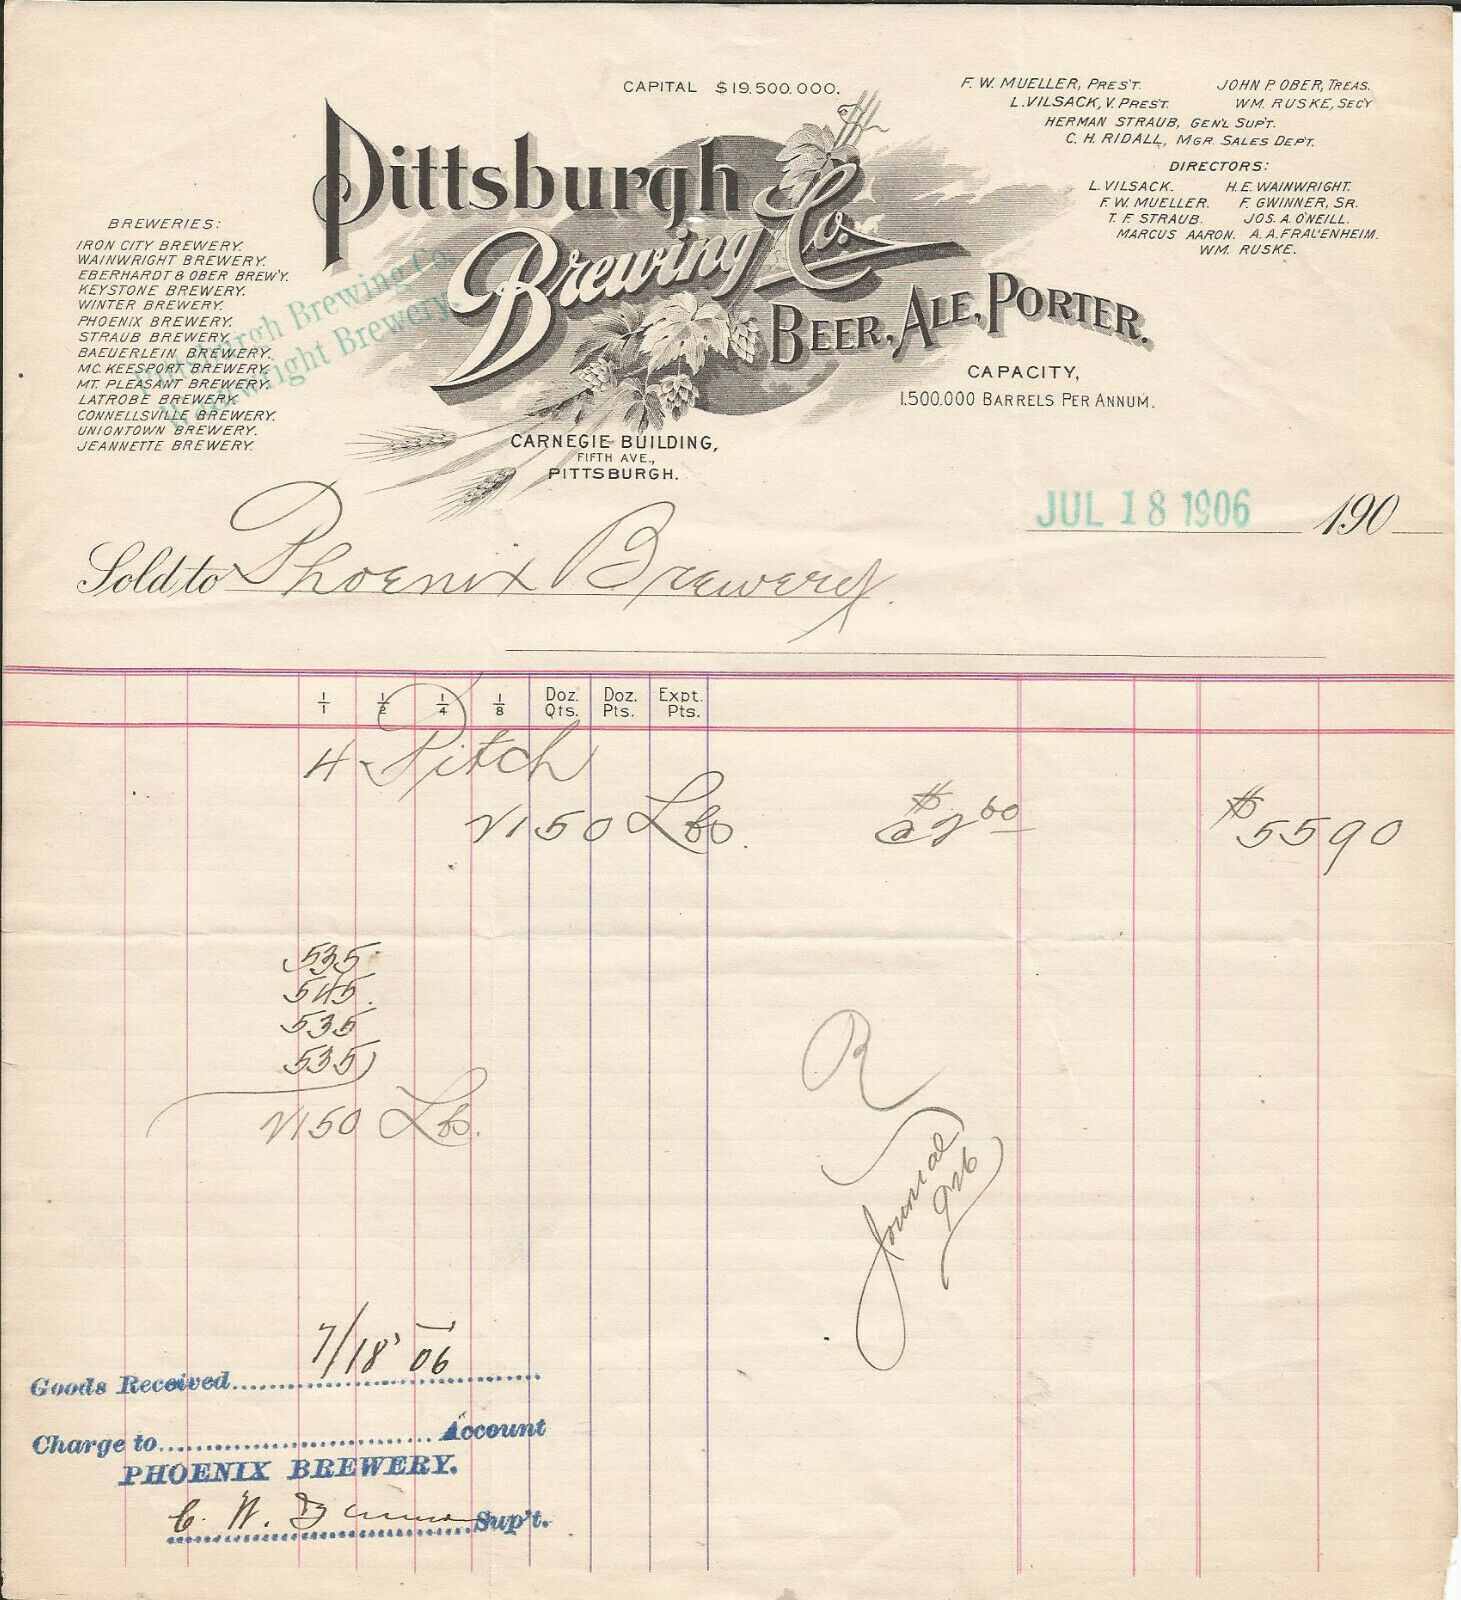 CAPITAL $19.500.000.
F. W. MUELLER, PRES'T. JOHN P. OBER, TREAS.
L. VILSACK, V. PREST. WM. RUSKE, SEC'Y
HERMAN STRAUB, GEN'L SUP'T.
C. H. RIDALL, MGR. SALES DEP'T.
DIRECTORS:
L. VILSACK. H. E. WAINWRIGHT.
F. W. MUELLER. F. GWINNER, SR.
T. F. STRAUB. JOS. A. O'NEILL.
MARCUS AARON. A. A. FRAUENHEIM.
WM. RUSKE.
Pittsburgh
Brewing Co.
BEER, ALE, PORTER.
CAPACITY,
1.500.000 BARRELS PER ANNUM.
BREWERIES:
IRON CITY BREWERY.
WAINWRIGHT BREWERY.
EBERHARDT & OBER BREW'Y.
KEYSTONE BREWERY.
WINTER BREWERY.
PHOENIX BREWERY.
STRAUB BREWERY.
BAEUERLEIN BREWERY.
MC. KEESPORT BREWERY.
MT. PLEASANT BREWERY.
LATROBE BREWERY.
CONNELLSVILLE BREWERY.
UNIONTOWN BREWERY.
JEANNETTE BREWERY.
Pittsburgh Brewing Co.
Wainwright Brewery.
CARNEGIE BUILDING,
FIFTH AVE.,
PITTSBURGH.
JUL 18 1906 190
Sold to Phoenix Brewery.
1/1 1/2 1/4 1/8 Doz. Qts. Doz. Pts. Expt. Pts.
4 Pitch
2150 Lbs. @ $2 60 $55 90
535
545.
535
535
2150 Lbs.
R
Journal
926
7/18 06
Goods Received
Charge to Account
PHOENIX BREWERY.
C. W. Sup't.